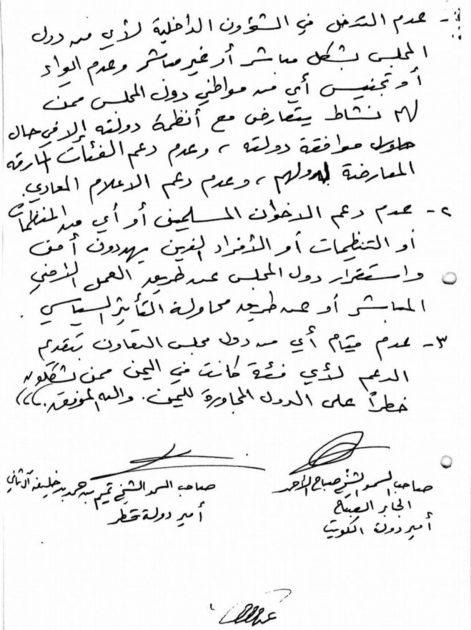 ١- عدم التدخل في الشؤون الداخلية لأي من دول
المجلس بشكل مباشر أو غير مباشر وعدم ايواء
أو تجنيس أي من مواطني دول المجلس ممن
لهم نشاط يتعارض مع أنظمة دولته إلا في حال
موافقة دولته، وعدم دعم الفئات المارقة
المعارضة لدولهم، وعدم دعم الاعلام المعادي.
٢- عدم دعم الاخوان المسلمين أو أي من المنظمات
أو التنظيمات أو الأفراد الذين يهددون أمن
واستقرار دول المجلس عن طريق العمل الأمني
المباشر أو عن طريق محاولة التأثير السياسي.
٣- عدم قيام أي من دول مجلس التعاون بتقديم
الدعم لأي فئة كانت في اليمن ممن يشكلون
خطراً على الدول المجاورة لليمن. والله الموفق،،،
صاحب السمو الشيخ صباح الأحمد
الجابر الصباح
أمير دولة الكويت
صاحب السمو الشيخ تميم بن حمد بن خليفة آل ثاني
أمير دولة قطر